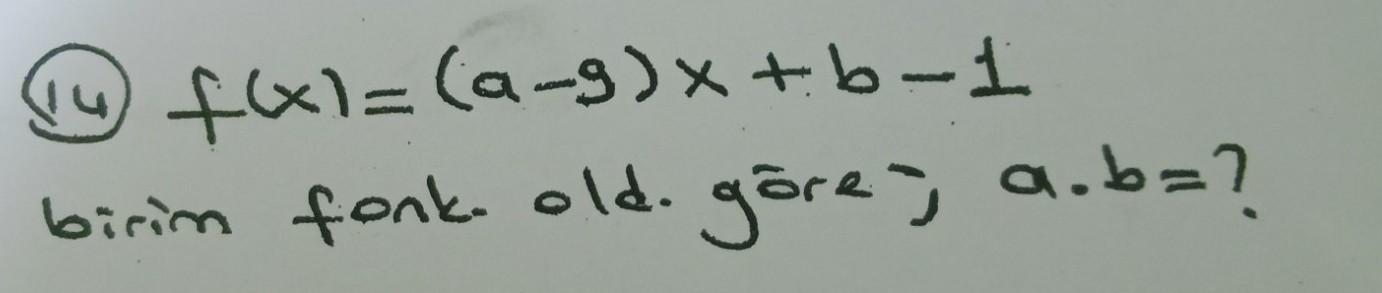 14 f(x)=(a-9)x+b-1
birim fonk. old. göre; a.b=?